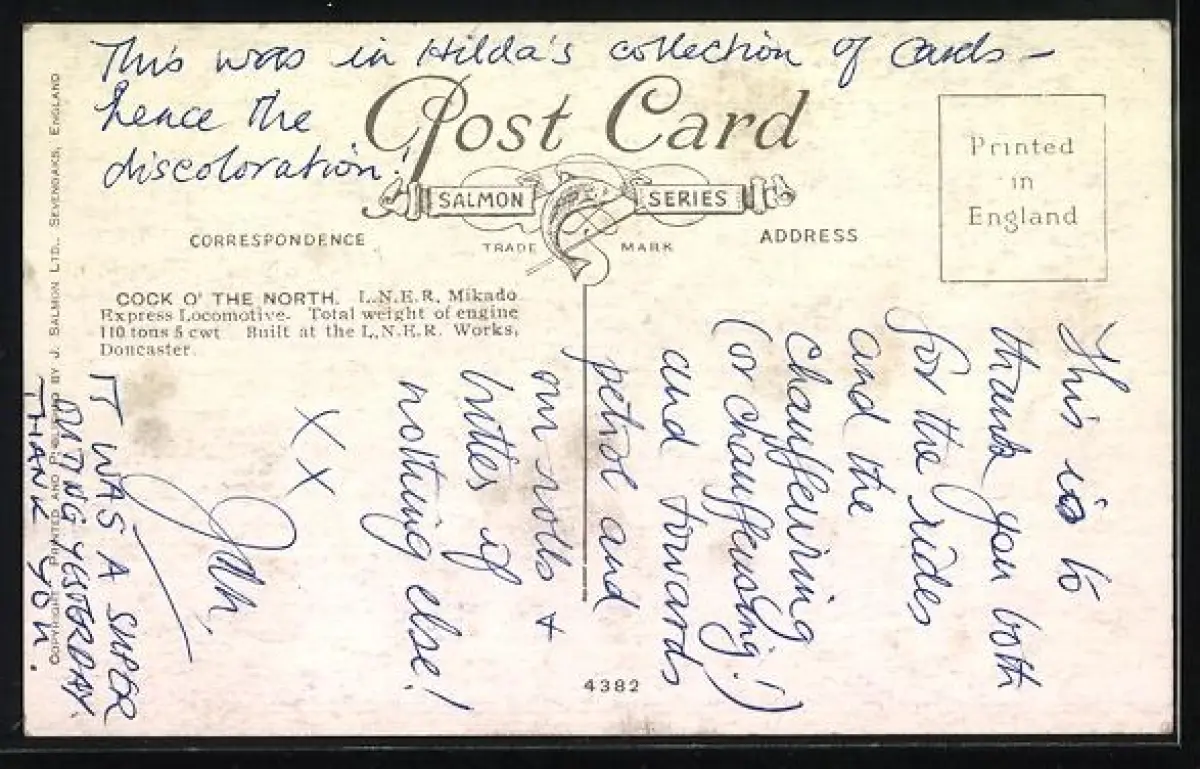 This was in Hilda's collection of cards –
hence the
discoloration!
Post Card
SALMON SERIES
TRADE MARK
CORRESPONDENCE
ADDRESS
Printed
in
England
COCK O' THE NORTH. L.N.E.R. Mikado
Express Locomotive. Total weight of engine
110 tons 5 cwt Built at the L.N.E.R. Works,
Doncaster.
This is to
thank you both
for the rides
and the
chauffeuring
(or chauffeusing!)
and towards
petrol and
our rolls +
butties if
nothing else!
X X
John.
IT WAS A SUPER
OUTING YESTERDAY.
THANK YOU.
COPYRIGHT PRINTED AND PUBLISHED BY J. SALMON LTD., SEVENOAKS, ENGLAND
4382